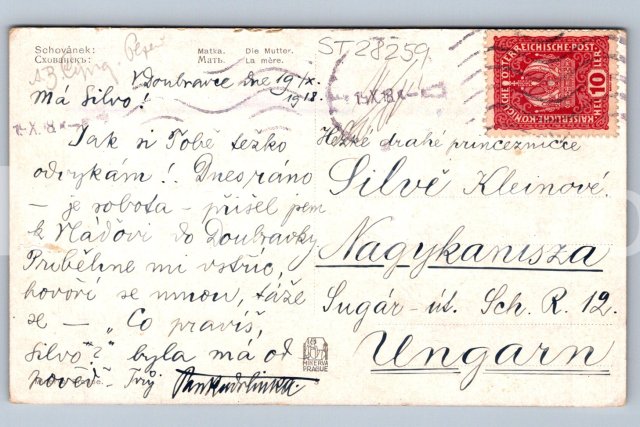 Schovánek:
Схованекъ:
Matka. Die Mutter.
Мать. La mère.
ST 28259
Plzeň
V Doubravce dne 19/X.
1918.
Má Silvo!
Jak si Tobě težko
odvykám! Dnes ráno
— je sobota — přišel jsem
k Vláďovi do Doubravky
Přiběhne mi vstříc,
hovoří se mnou, táže
se — „Co pravíš,
Silvo"? byla má od
pověď. Tvůj
Hezké drahé princezničce
Silvě Kleinové.
Nagykanisza
Sugár-út. Sch. R. 12.
Ungarn
KAISERLICHE KÖNIGLICHE ÖSTERREICHISCHE POST
10 HELLER
MINERVA
PRAGUE